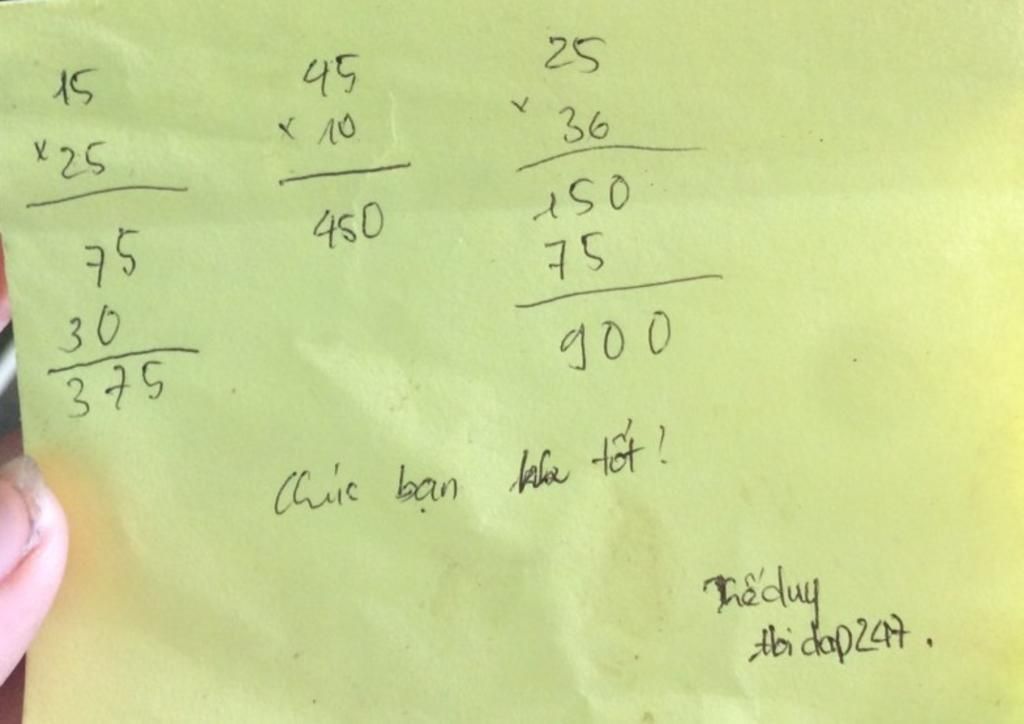 15
× 25
75
30
375
45
× 10
450
25
× 36
150
75
900
Chúc bạn tốt!
Thế duy
hoidap247.